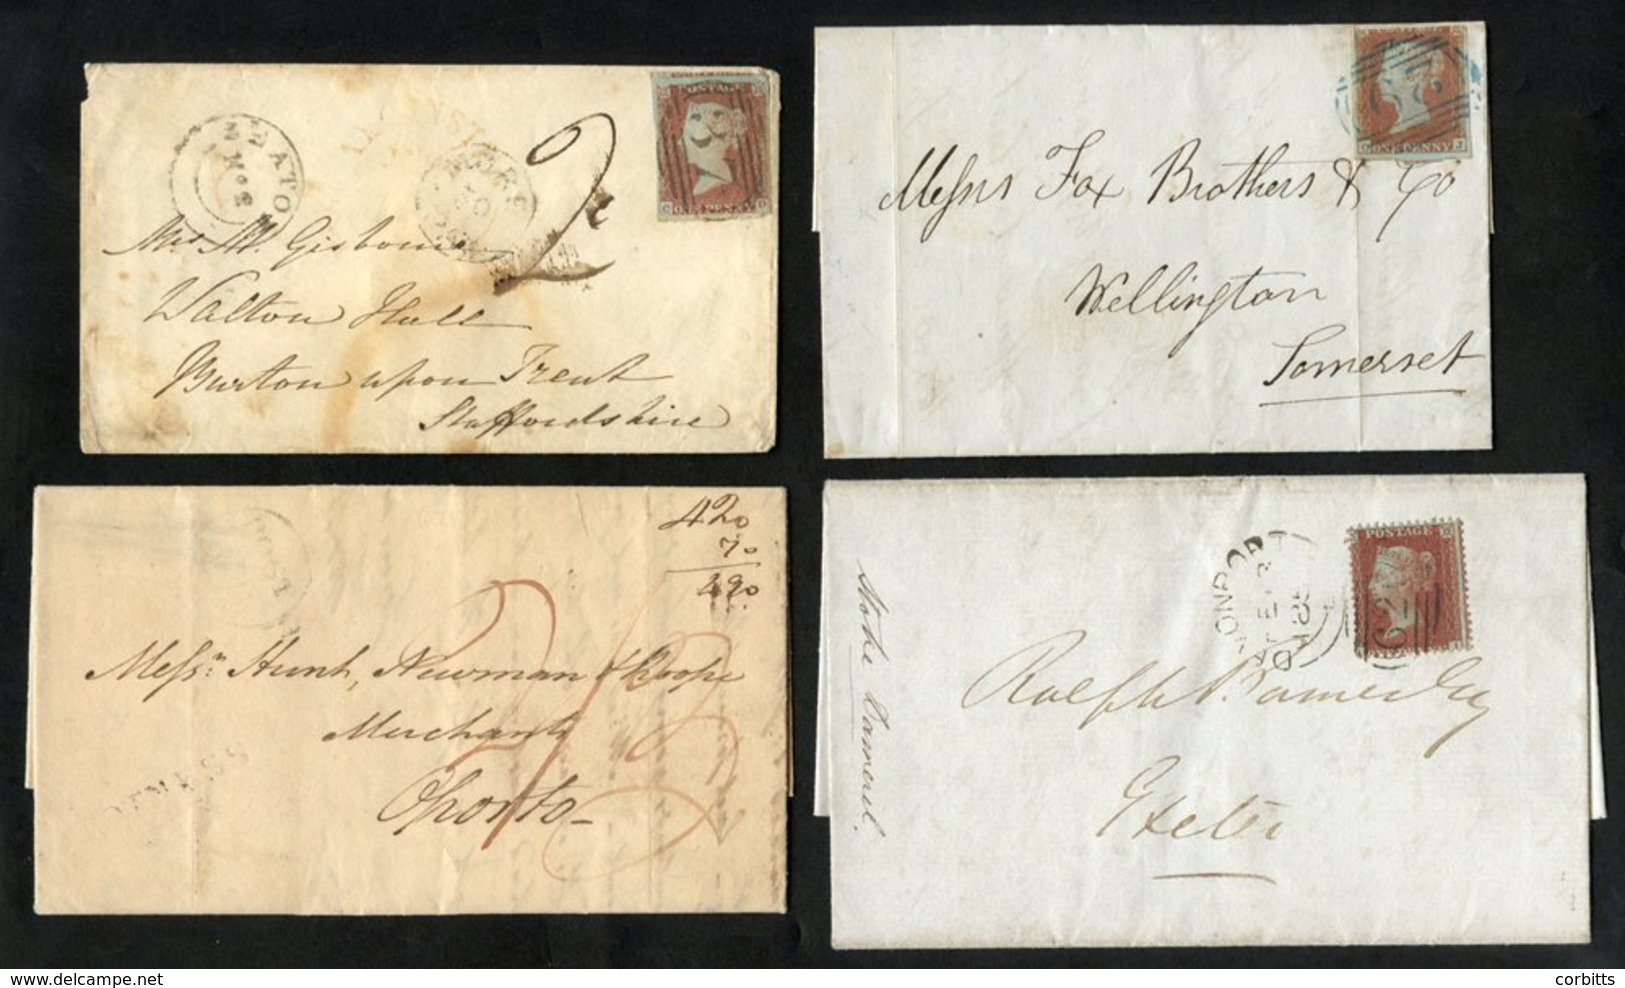 SEATON
2
POSTAGE
ONE PENNY
Mrs M. Gisborne
Walton Hall
Burton upon Trent
Staffordshire
ONE PENNY
Messrs Fox Brothers & Co
Wellington
Somerset
420
70
490
Messrs. Hunt, Newman & Roope
Merchants
Oporto
DEVONPORT
POSTAGE
Stoke Damerel.
Ralph Esq
Exeter
www.delcampe.net
corbitts